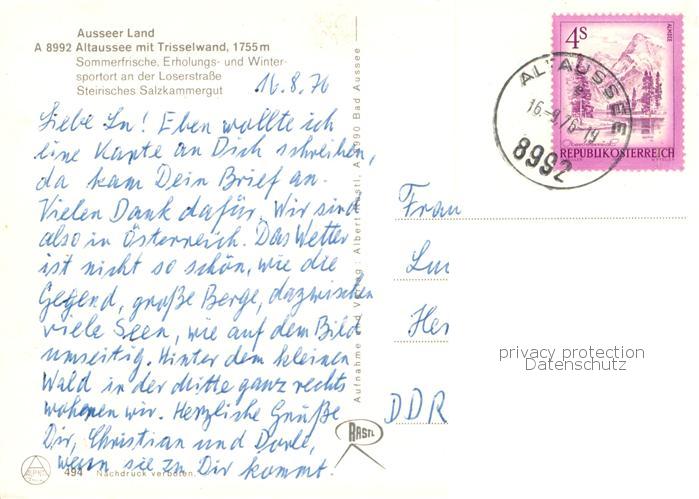 Ausseer Land
A 8992 Altaussee mit Trisselwand, 1755 m
Sommerfrische, Erholungs- und Winter-
sportort an der Loserstraße
Steirisches Salzkammergut
16.8.76
Liebe Lu! Eben wollte ich
eine Karte an Dich schreiben,
da kam Dein Brief an.
Vielen Dank dafür. Wir sind
also in Österreich. Das Wetter
ist nicht so schön, wie die
Gegend, große Berge, dazwischen
viele Seen, wie auf dem Bild
umseitig. Hinter dem kleinen
Wald in der Mitte ganz rechts
wohnen wir. Herzliche Grüße
Dir, Christian und
wenn sie zu Dir kommt.
494 Nachdruck verboten.
Aufnahme und Verlag: Albert Rastl, A 8990 Bad Aussee
RASTL
4 S
ALMSEE
REPUBLIK ÖSTERREICH
ALTAUSSEE
16.-9.76-19
8992
Frau
Lu
He
DDR
privacy protection
Datenschutz